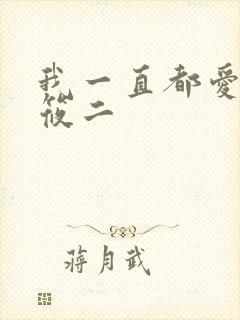 我一直都愛
筱二
蔣月武